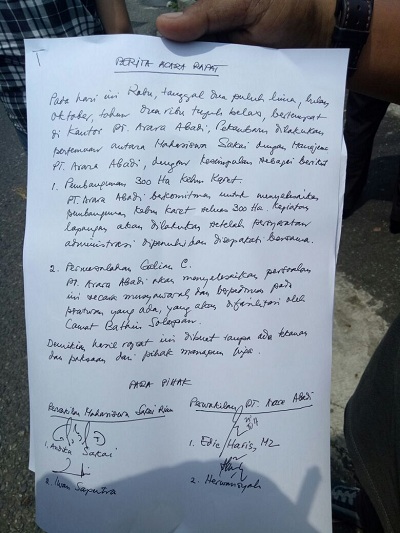 BERITA ACARA RAPAT
Pada hari ini Rabu, tanggal dua puluh lima, bulan
Oktober, tahun dua ribu tujuh belas, bertempat
di Kantor PT. Arara Abadi, Pekanbaru dilakukan
pertemuan antara Mahasiswa Sakai dengan
PT. Arara Abadi, dengan kesimpulan sebagai berikut
1. Pembangunan 300 Ha Kebun Karet.
PT. Arara Abadi berkomitmen untuk menyelesaikan
pembangunan kebun karet seluas 300 Ha kegiatan
lapangan akan dilakukan setelah persyaratan
administrasi dipenuhi dan disepakati bersama.
2. Permasalahan Galian C.
PT. Arara Abadi akan menyelesaikan persoalan
ini secara musyawarah dan berpedoman pada
peraturan yang ada, yang akan difasilitasi oleh
Camat Bathin Solapan.
Demikian hasil rapat ini dibuat tanpa ada tekanan
dan paksaan dari pihak manapun juga.
PARA PIHAK
Perwakilan Mahasiswa Sakai Riau
Perwakilan PT. Arara Abadi
1. Andika Sakai
1. Edie Haris, MZ
2. Iwan Saputra
2. Herwansyah